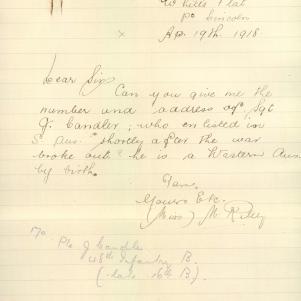 Flat
Pt Lincoln
Ap. 19th. 1918
x
Dear Sir
Can you give me the
number and address of Sgt
J. Candler, who enlisted in
S. Aus. shortly after the war
broke out" he is a Western Aus
by birth.
I am.
Yours Etc.
(Miss) M. Riley
Pte J Candler
48th Infantry B.
(late 16th B).